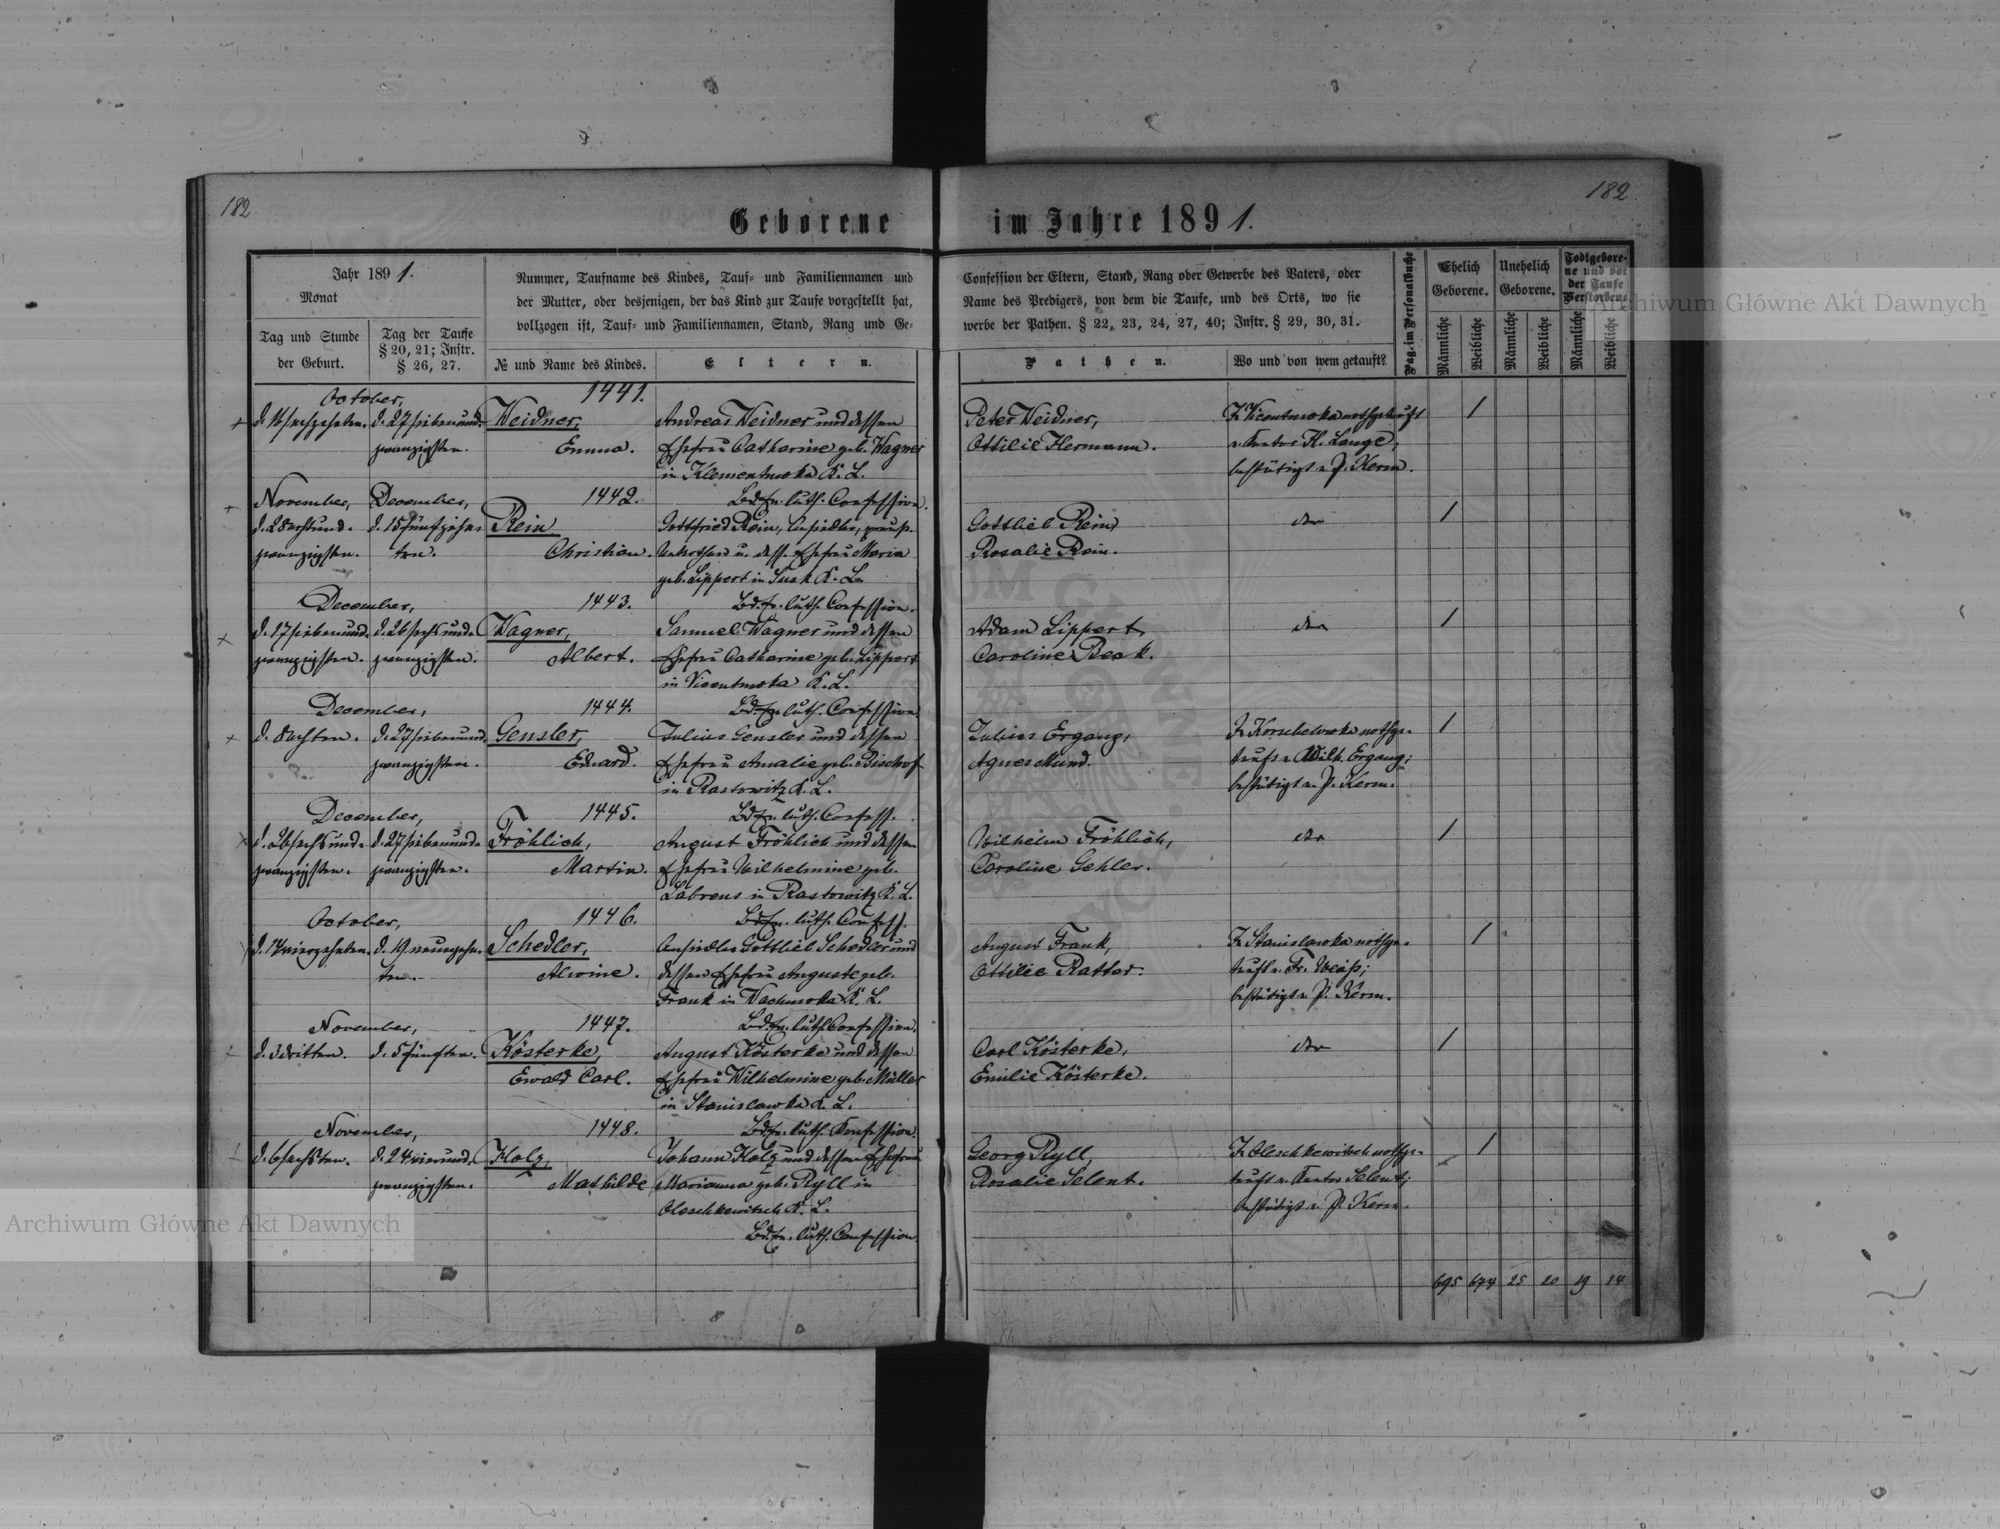 182
182
Geborene im Jahre 1891.
Jahr 1891.
Monat
Tag und Stunde
der Geburt.
Tag der Taufe
§ 20, 21; Instr.
§ 26, 27.
Nummer, Taufname des Kindes, Tauf- und Familiennamen und
der Mutter, oder desjenigen, der das Kind zur Taufe vorgestellt hat,
vollzogen ist, Tauf- und Familiennamen, Stand, Rang und Ge-
№ und Name des Kindes.
Eltern.
Confession der Eltern, Stand, Rang oder Gewerbe des Vaters, oder
Name des Predigers, von dem die Taufe, und des Orts, wo sie
werbe der Pathen. § 22, 23, 24, 27, 40; Instr. § 29, 30, 31.
Pathen.
Wo und von wem getauft?
Pag. im Personalbuche
Ehelich
Geborene.
Unehelich
Geborene.
Todtgebore-
ne und vor
der Taufe
Verstorbene
Männliche
Weibliche
Männliche
Weibliche
Männliche
Weibliche
October,
1441.
d. 16 sechszehnten.
d. 27 siebenund-
zwanzigsten.
Weidner,
Emma.
Andreas Weidner und dessen
Ehefrau Catharine geb. Wagner
in Klementinowka K. L.
Bd. ev. luth. Confession.
Peter Weidner,
Ottilie Hermann.
v. Kantor H. Lange;
bestätigt v. P. Kerm.
1
November,
December,
1442.
d. 28 achtund-
zwanzigsten.
d. 15 fünfzehn-
ten.
Rein
Christian.
Gottfried Rein, Ansiedler, preuß.
Unterthan u. dess. Ehefrau Maria
geb. Lippert in Susk K. L.
Bd. ev. luth. Confession.
Gottlieb Rein,
Rosalie Rein.
1
December,
1443.
d. 27 siebenund-
zwanzigsten.
d. 26 sechsund-
zwanzigsten.
Wagner,
Albert.
Samuel Wagner und dessen
Ehefrau Catharine geb. Lippert
in Vicentinowka K. L.
Bd. ev. luth. Confession.
Adam Lippert,
Caroline Beck.
1
December,
1444.
d. 8 achten.
d. 27 siebenund-
zwanzigsten.
Gensler,
Eduard.
Julius Gensler und dessen
Ehefrau Amalie geb. Bischof
in Rastowitz K. L.
Bd. ev. luth. Confess.
Julius Ergang,
Agnes Mund.
tauft v. Wilh. Ergang;
bestätigt v. P. Kerm.
1
December,
1445.
d. 26 sechsund-
zwanzigsten.
d. 27 siebenund-
zwanzigsten.
Fröhlich,
Martin.
August Fröhlich und dessen
Ehefrau Wilhelmine geb.
Labrens in Rastowitz K. L.
Bd. ev. luth. Confess.
Wilhelm Fröhlich,
Caroline Gehler.
1
October,
1446.
d. 14 vierzehnten.
d. 19 neunzehn-
ten.
Schedler,
Alwine.
Ansiedler Gottlieb Schedler und
dessen Ehefrau Auguste geb.
Frank in Wachnowka K. L.
Bd. ev. luth. Confession.
August Frank,
Ottilie Ratter.
Z. Stanislawka nothge-
tauft v. Fr. Weiß;
bestätigt v. P. Kerm.
1
November,
1447.
d. 3 dritten.
d. 5 fünften.
Kösterke,
Ewald Carl.
August Kösterke und dessen
Ehefrau Wilhelmine geb. Müller
in Stanislawka K. L.
Bd. ev. luth. Confession.
Carl Kösterke,
Emilie Kösterke.
1
November,
1448.
d. 6 sechsten.
d. 24 vierund-
zwanzigsten.
Holz,
Mathilde
Johann Holz und dessen Ehefrau
Marianna geb. Ryll in
Oleschkewitsch K. L.
Bd. ev. luth. Confession.
Georg Ryll,
Rosalie Selent.
Z. Oleschkewitsch nothge-
tauft v. Kantor Selent;
bestätigt v. P. Kerm.
1
695 674 25 20 19 14
Archiwum Główne Akt Dawnych
Archiwum Główne Akt Dawnych